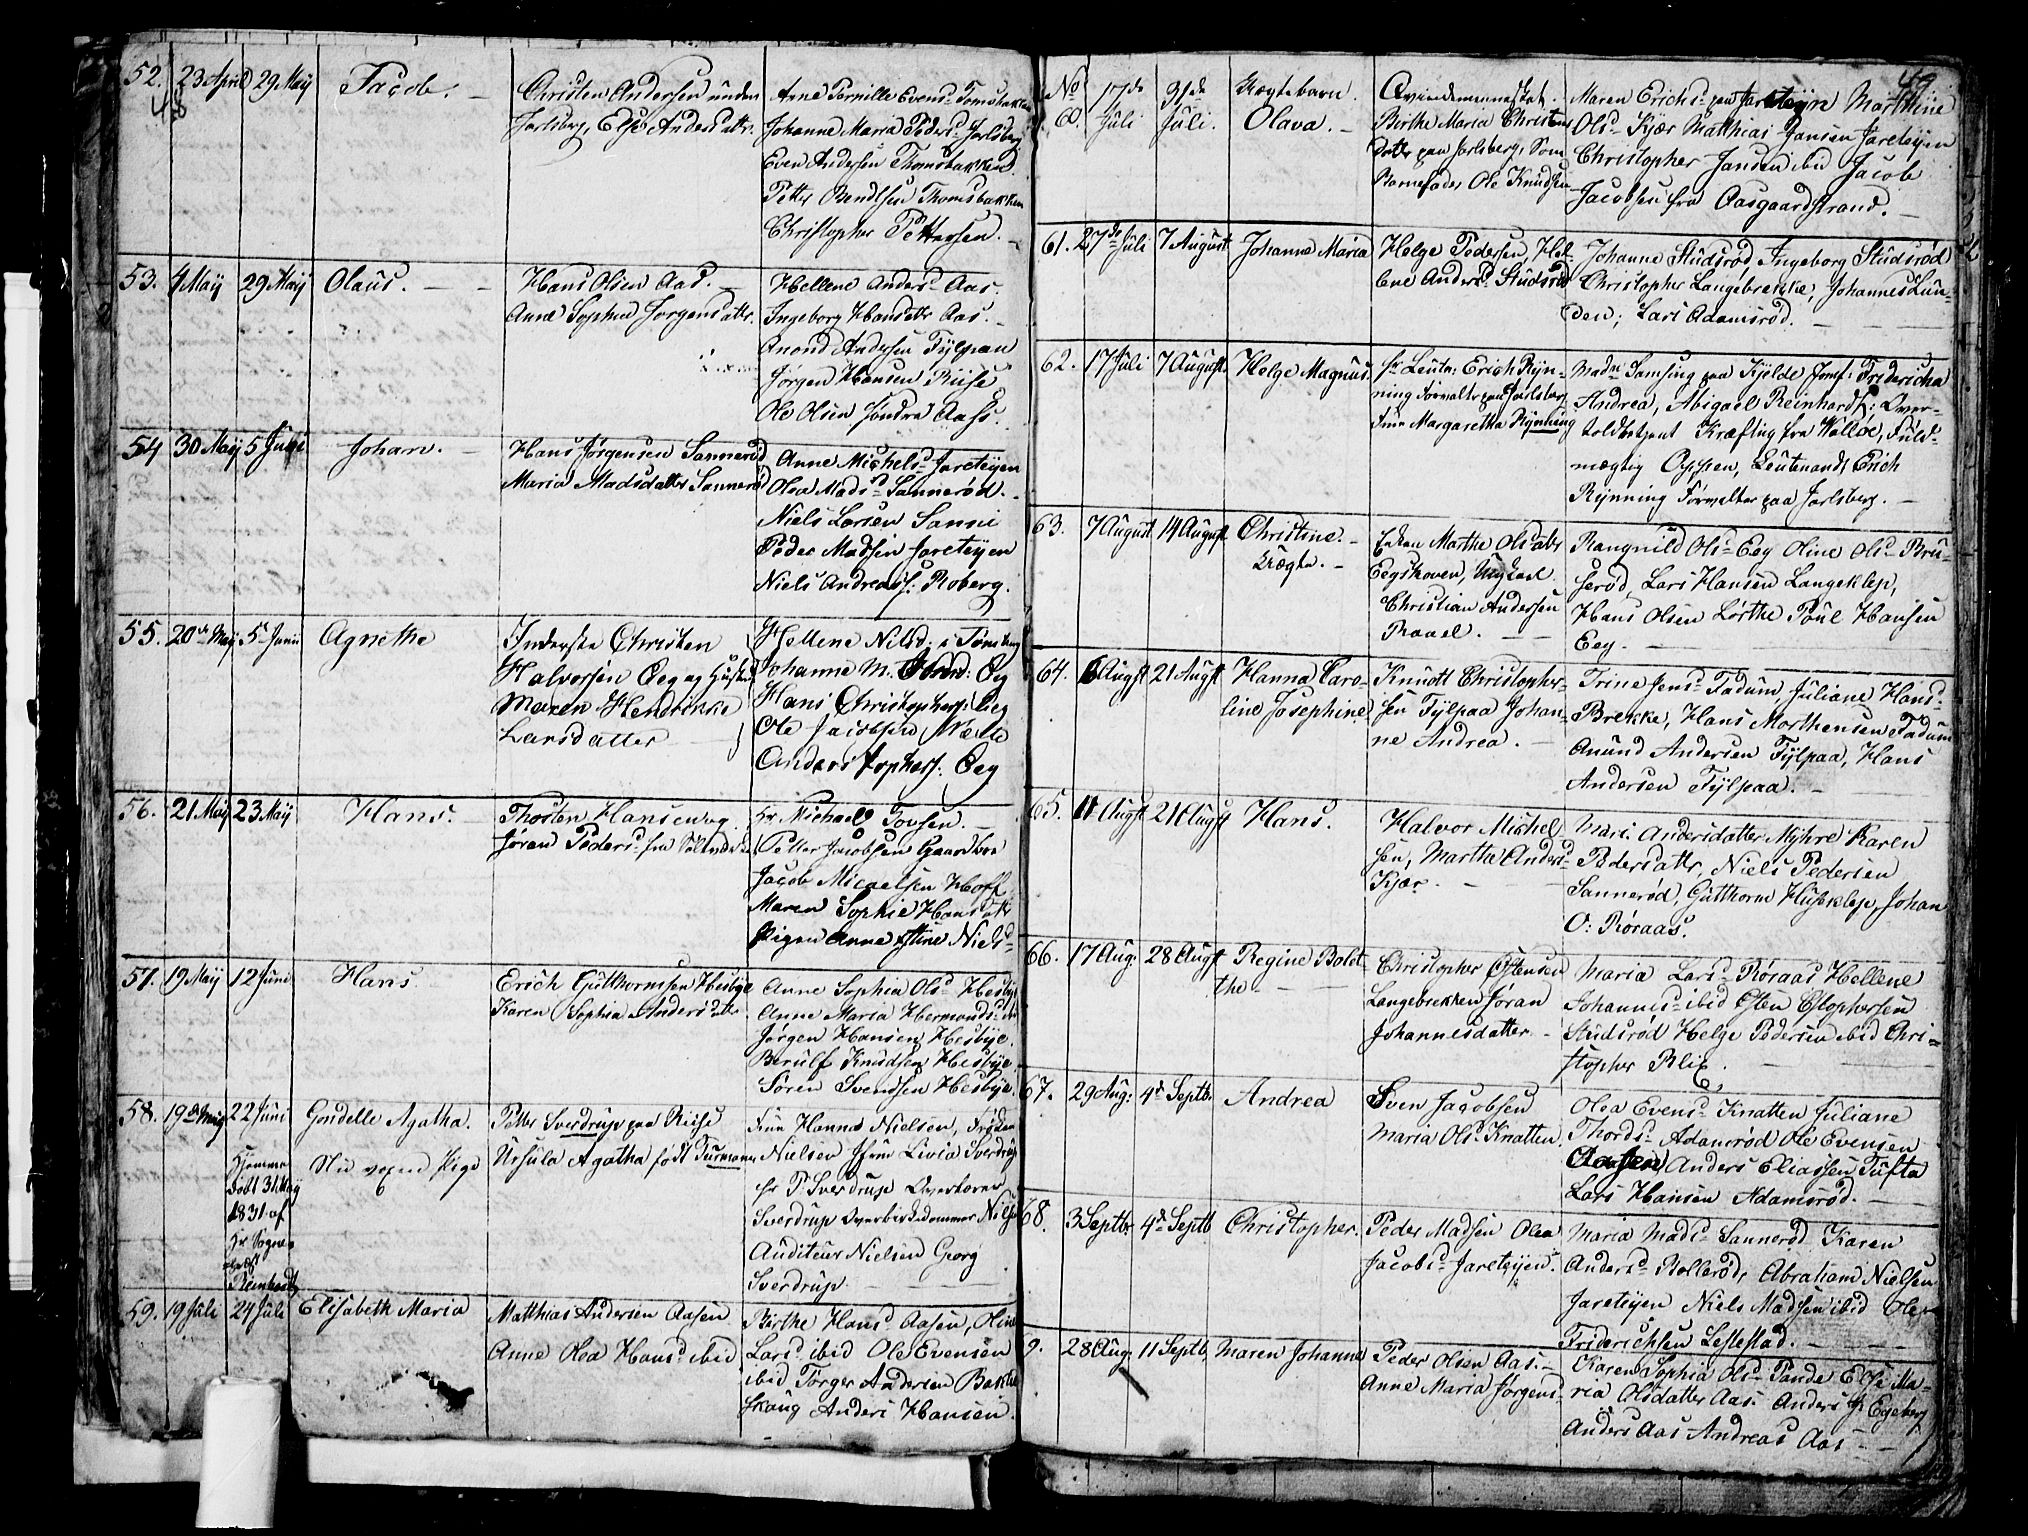 48
52. 23 April 29 May Jacob. —
Christen Andersen under
Jarlsberg, Else Andersdattr.
Anne Pernille Evensd Tomsbakken
Johanne Maria Pedersd Jarlsberg
Even Andersen Thomsbakken
Petter Bendtsen Thomsbakken
Christopher Pettersen. —
53. 4 May 29 May Olaus. — —
Hans Olsen Aas. —
Anne Sophia Jørgensdattr.
Hellene Andersd Aas.
Ingeborg Hansdattr Aas. —
Anond Andersen Fylpaa
Jørgen Hansen Riise
Ole Olsen søndre Aas.
54 30 May 5 Juni Johan. —
Hans Jørgensen Sannerød
Maria Madsdatter Sannerød
Anne Michelsd Jareteyen
Olea Madsd Sannerød. —
Niels Larsen Sanni
Peder Madsen Jareteyen
Niels Andreass: Roberg.
55. 20de May 5 Juni Agnethe
Inderste Christen
Halvorsen Oeg og Hustru
Maren Hendrikke
Larsdatter —
Hellene Nilsd: i Tønsberg
Johanne M. Oeg
Hans Christophers: Oeg
Ole Jacobsen
Anders Oeg
56. 21 May 23 May Hans. —
Thosten Hansen og
Jøren Pedersd fra
Hr Michael Tovsen.
Petter Jacobsen Gaardboe
Jacob Micaelsen Hoff
Maren Sophie Hansdtr
Pigen Anne Stine Nielsd
57. 19 May 12 Juni Hans
Erich Gutthormsen Hesbye
Karen Sophia Andersdattr.
Anne Sophia Olsd Hesbye
Anne Maria Hermandsd
Jørgen Hansen Hesbye.
Berulf Knudsen Hesbye
Søren Svendsen Hesbye.
58. 19de May 22 Juni Gondelle Agatha.
Nu vexen Pige
Hjemme
døbt 31 May
1831 af
Hr Sogne-
præst
Reinhardt
Petter Sverdrup paa Riise
Ursula Agatha født Turmann
Frue Hanna Nielsen, Frøken
Nielsen Frue Livia Sverdrup
Hr P Sverdrup
Sverdrup Nielsen
Auditeur Nielsen Georg
Sverdrup — —
59. 19 Juli 24 Juli Elisabeth Maria
Matthias Andersen Aasen
Anne Olea Hansd ibid
Birthe Hansd Aasen, Oline
Larsd ibid Ole Evensen
ibid Torger Andersen Bakke
skoug Anders Hansen.
49
No
60. 17de Juli 31de Juli. Uægtebarn.
Olava. —
Qvindemennesket
Birthe Maria Christens
Datter paa Jarlsberg, Som
Barnefader Ole Knudsen
Maren Erichsd paa Jareteyen Marthine
Olsd Kjær Matthias Jansen Jareteyen
Christopher Jansen ibd Jacob
Jacobsen fra Aasgaardstrand. —
61. 27de Juli 7 August Johanne Maria
Helge Pedersen, Hel-
lene Andersd Studsrød
Johanne Studsrød Ingeborg Studsrød
Christopher Langebrekke, Johannes Lun-
den; Lars Adamsrød. — — —
62. 17 Juli 7 August. Helge Magnus.
Hr Leutn: Erich Ryn-
ning Forvalter paa Jarlsberg
Frue Margaretha Rynning
Madm Samsing paa Kjelde Jomf: Fridericha
Andrea, Abigael Reinhardt: Over-
toldbetjent Kræfting fra Valløe, Fuld-
mægtig Oppen, Leutenandt Erich
Rynning Forvalter paa Jarlsberg. —
63. 7 August 14 August Christine. —
Uægte. —
Enken Marthe Olsdattr
Eegskoven, Ungkarl
Christian Andersen
Raael. — —
Rangnild Olsd Eeg Oline Olsd Bru-
serød, Lars Hansen Langeklep,
Hans Olsen Lørthe Poul Hansen
Eeg. — — —
64. 6 August 21 August Hanna Caro-
line Josephine
Knutt Christopher-
sen Fylpaa Johan-
ne Andrea. —
Trine Jensd Fadum, Juliane Hansd
Brekke, Hans Morthensen Fadum
Anund Andersen Fylpaa, Hans
Andersen Fylpaa. —
65. 11 August 21 August Hans.
Halvor Michel
sen, Marthe Andersd
Kjær. —
Mari Andersdatter Myhre Karen
Pedersdattr, Niels Pedersen
Sannerød, Gutthorm Huseklep, Johan
O: Røraas.
66. 17 Aug: 28 August Regine Bolet
the — — —
Christopher Estensen
Langebrekken Jøran
Johannesdatter —
Maria Larsd Røraas Hellene
Johannisd ibid Esten Estophersen
Studsrød Helge Pedersen ibid Chri-
stopher Blix. — —
67. 29 Aug: 4de Septbr Andrea
Sven Jacobsen
Maria Olsd Knatten.
Olea Evensd Knatten Juliane
Thordsd Adamrød Ole Evensen
Aasen Anders Eliassen Tufta
Lars Hansen Adamsrød. —
68. 3 Septbr 4de Septb Christopher.
Peder Madsen Olea
Jacobsd Jareteyen.
Maria Madsd Sannerød Karen
Andersd Rollerød, Abraham Nielsen
Jareteyen Niels Madsen ibid Ole
Friderichsen Lestestad. — — —
9. 28 Aug 11 Septb. Maren Johanne
Peder Olsen Aas. —
Anne Maria Jørgensd
Karen Sophia Olsd Pande Else Ma-
ria Olsdatter Aas. Anders Egeberg
Anders Aas Andreas Aas — —